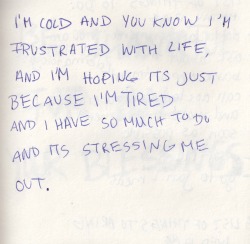 I'M COLD AND YOU KNOW I'M
FRUSTRATED WITH LIFE,
AND I'M HOPING ITS JUST
BECAUSE I'M TIRED
AND I HAVE SO MUCH TO DO
AND ITS STRESSING ME
OUT.